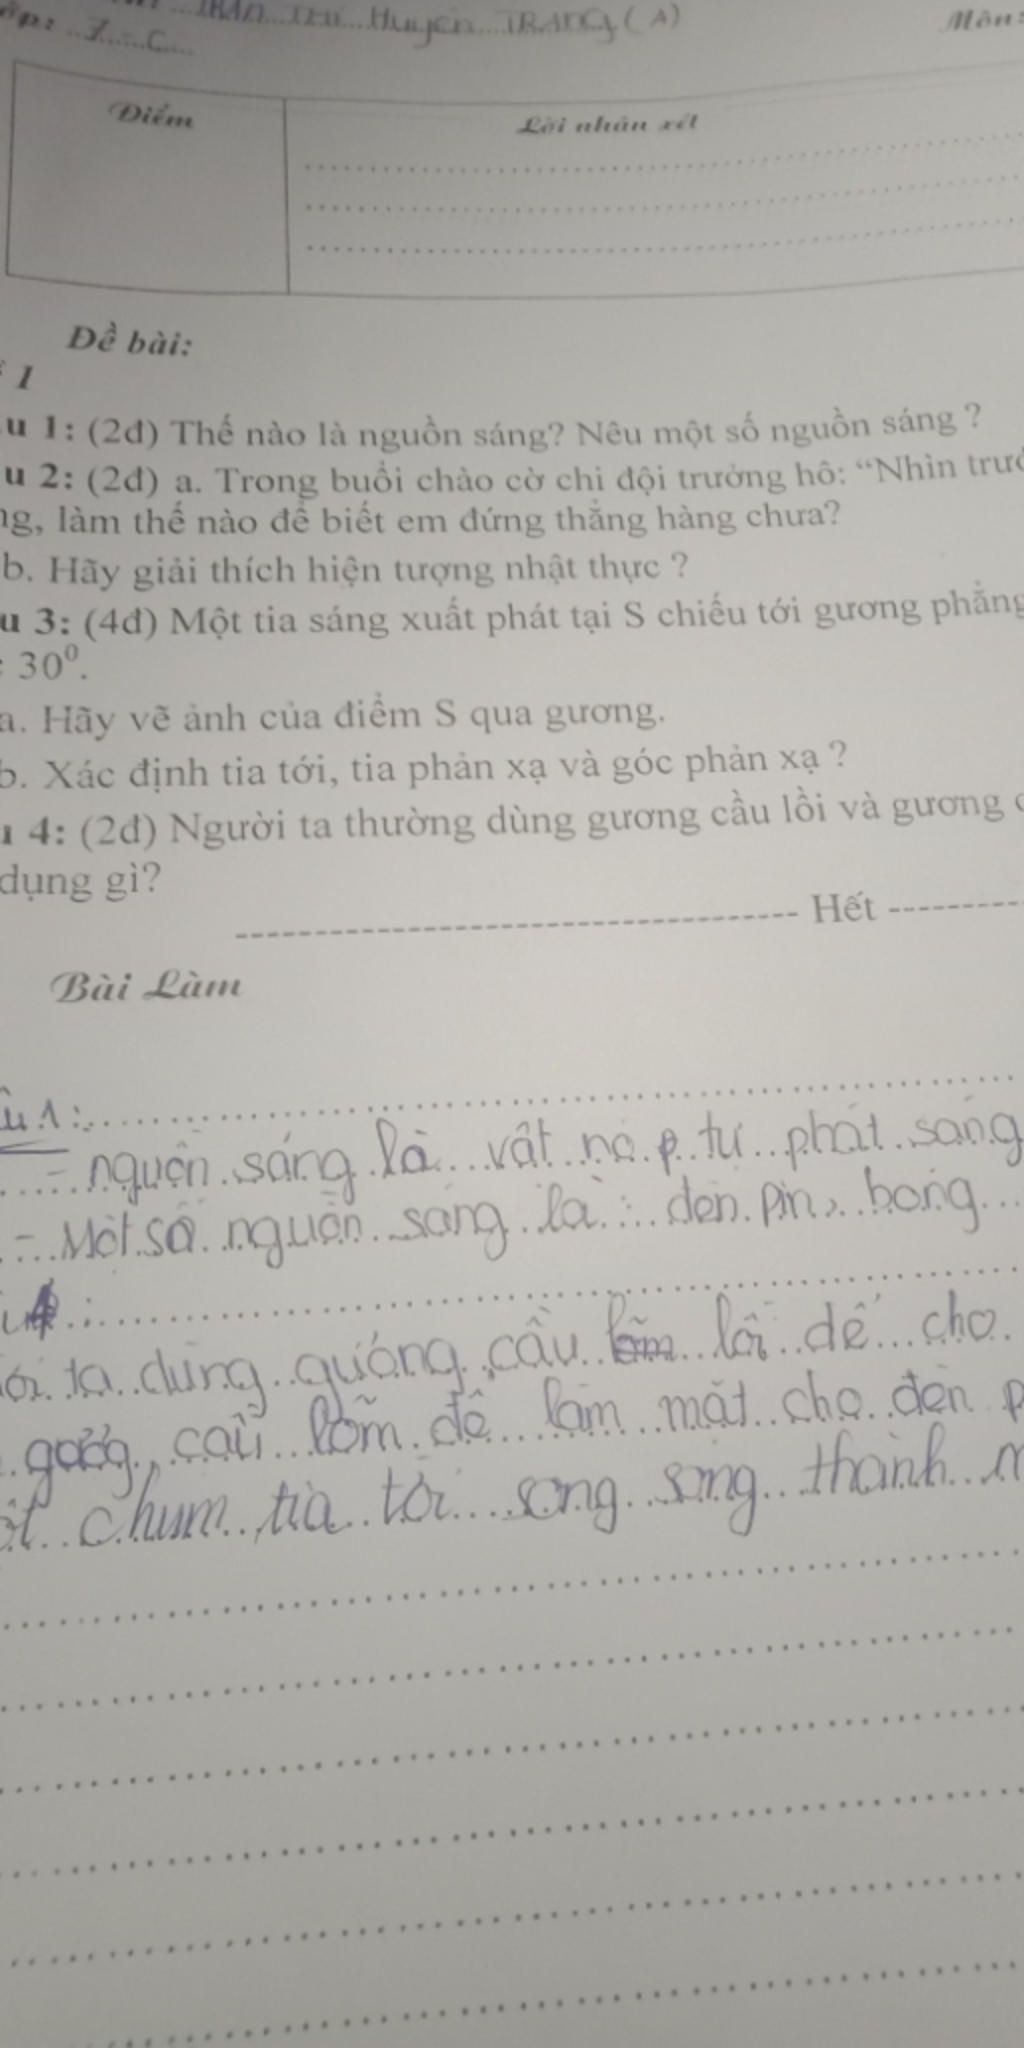 TRẦN THỊ Huyền TRANG (A)
ớp: 7 - C
Môn:
Điểm
Lời nhận xét
Đề bài:
1
u 1: (2đ) Thế nào là nguồn sáng? Nêu một số nguồn sáng ?
u 2: (2đ) a. Trong buổi chào cờ chi đội trưởng hô: “Nhìn trướ
ng, làm thế nào để biết em đứng thẳng hàng chưa?
b. Hãy giải thích hiện tượng nhật thực ?
u 3: (4đ) Một tia sáng xuất phát tại S chiếu tới gương phẳng
30⁰.
a. Hãy vẽ ảnh của điểm S qua gương.
b. Xác định tia tới, tia phản xạ và góc phản xạ ?
4: (2đ) Người ta thường dùng gương cầu lồi và gương
dụng gì?
Hết
Bài Làm
âu 1:
- nguồn sáng là vật nó tự phát sáng
- Một số nguồn sáng là : đèn pin, bóng
4 :
ời ta dùng gương cầu lồi để cho
gương cầu lõm để làm mặt cho đèn p
ột chùm tia tới song song thành m